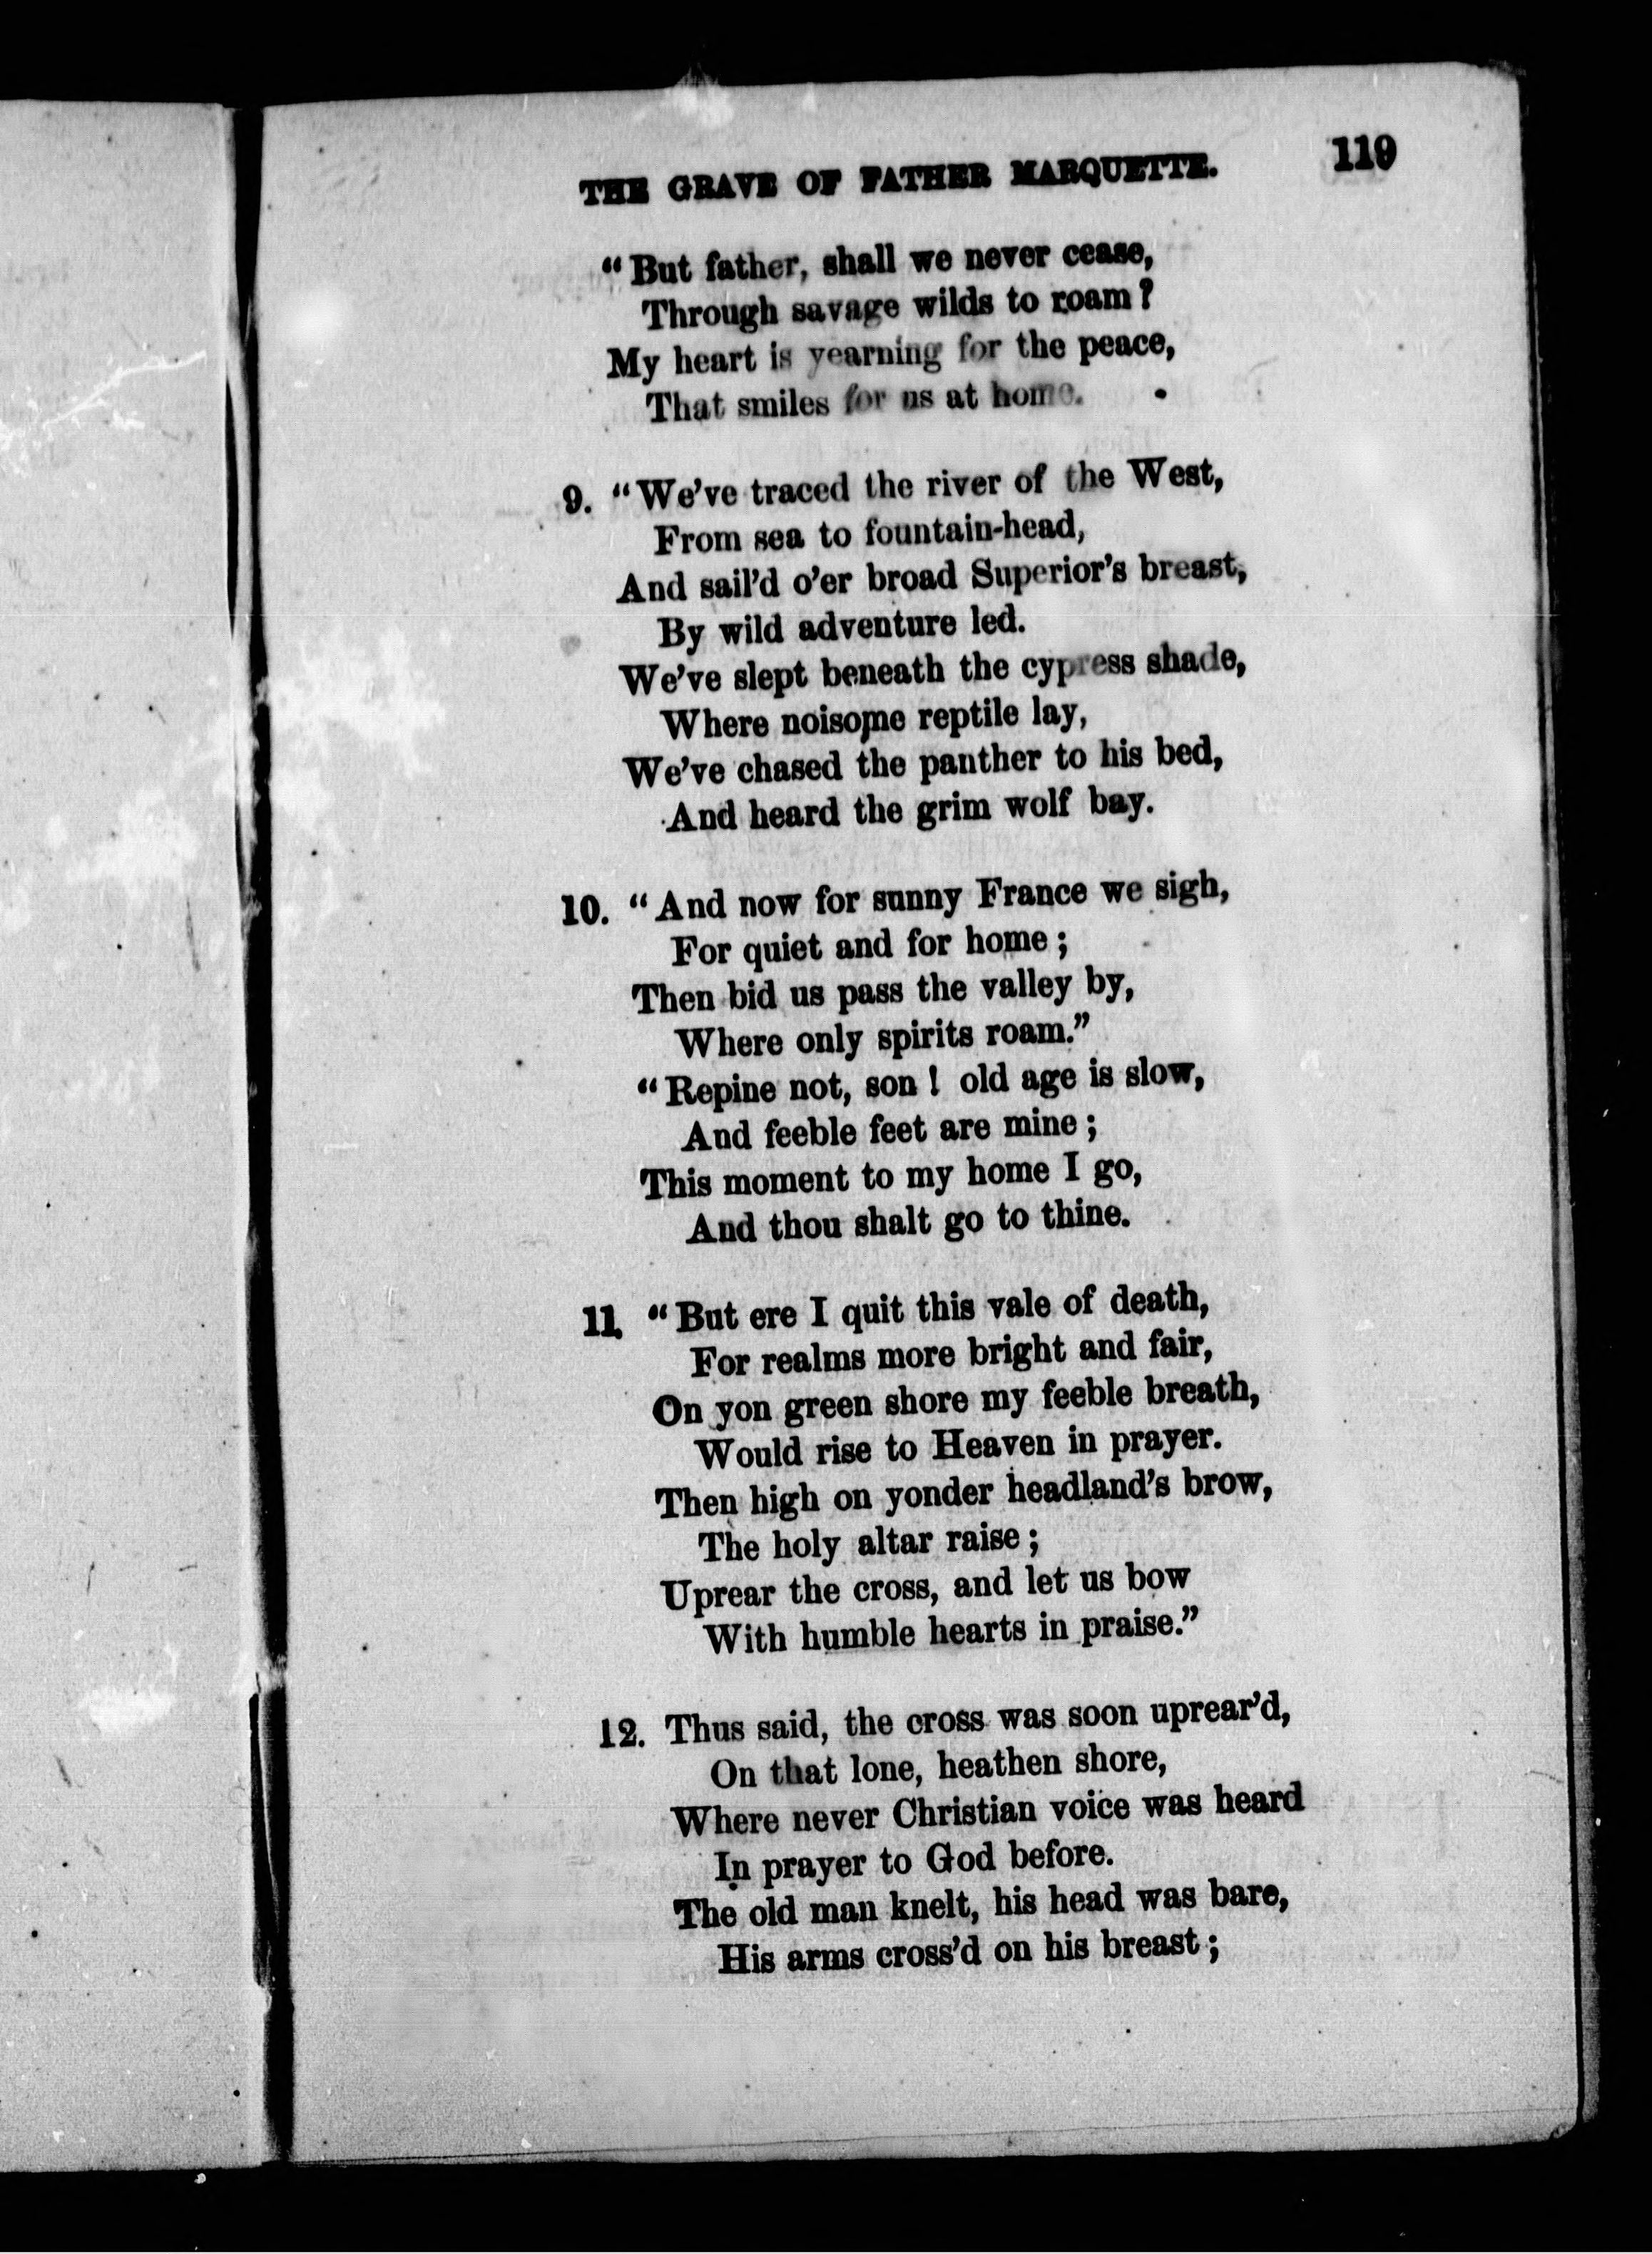 THE GRAVE OF FATHER MARQUETTE. 119
“But father, shall we never cease,
Through savage wilds to roam?
My heart is yearning for the peace,
That smiles for us at home.
9. “We’ve traced the river of the West,
From sea to fountain-head,
And sail’d o’er broad Superior’s breast,
By wild adventure led.
We’ve slept beneath the cypress shade,
Where noisome reptile lay,
We’ve chased the panther to his bed,
And heard the grim wolf bay.
10. “And now for sunny France we sigh,
For quiet and for home;
Then bid us pass the valley by,
Where only spirits roam.”
“Repine not, son! old age is slow,
And feeble feet are mine;
This moment to my home I go,
And thou shalt go to thine.
11. “But ere I quit this vale of death,
For realms more bright and fair,
On yon green shore my feeble breath,
Would rise to Heaven in prayer.
Then high on yonder headland’s brow,
The holy altar raise;
Uprear the cross, and let us bow
With humble hearts in praise.”
12. Thus said, the cross was soon uprear’d,
On that lone, heathen shore,
Where never Christian voice was heard
In prayer to God before.
The old man knelt, his head was bare,
His arms cross’d on his breast;